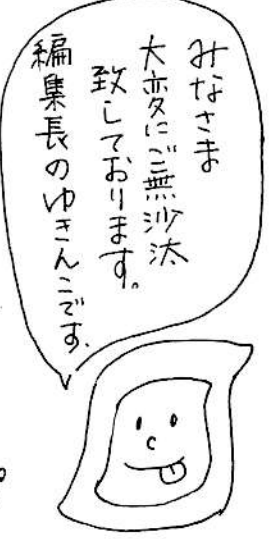 みなさま
大変にご無沙汰
致しております。
編集長のゆきんこです、